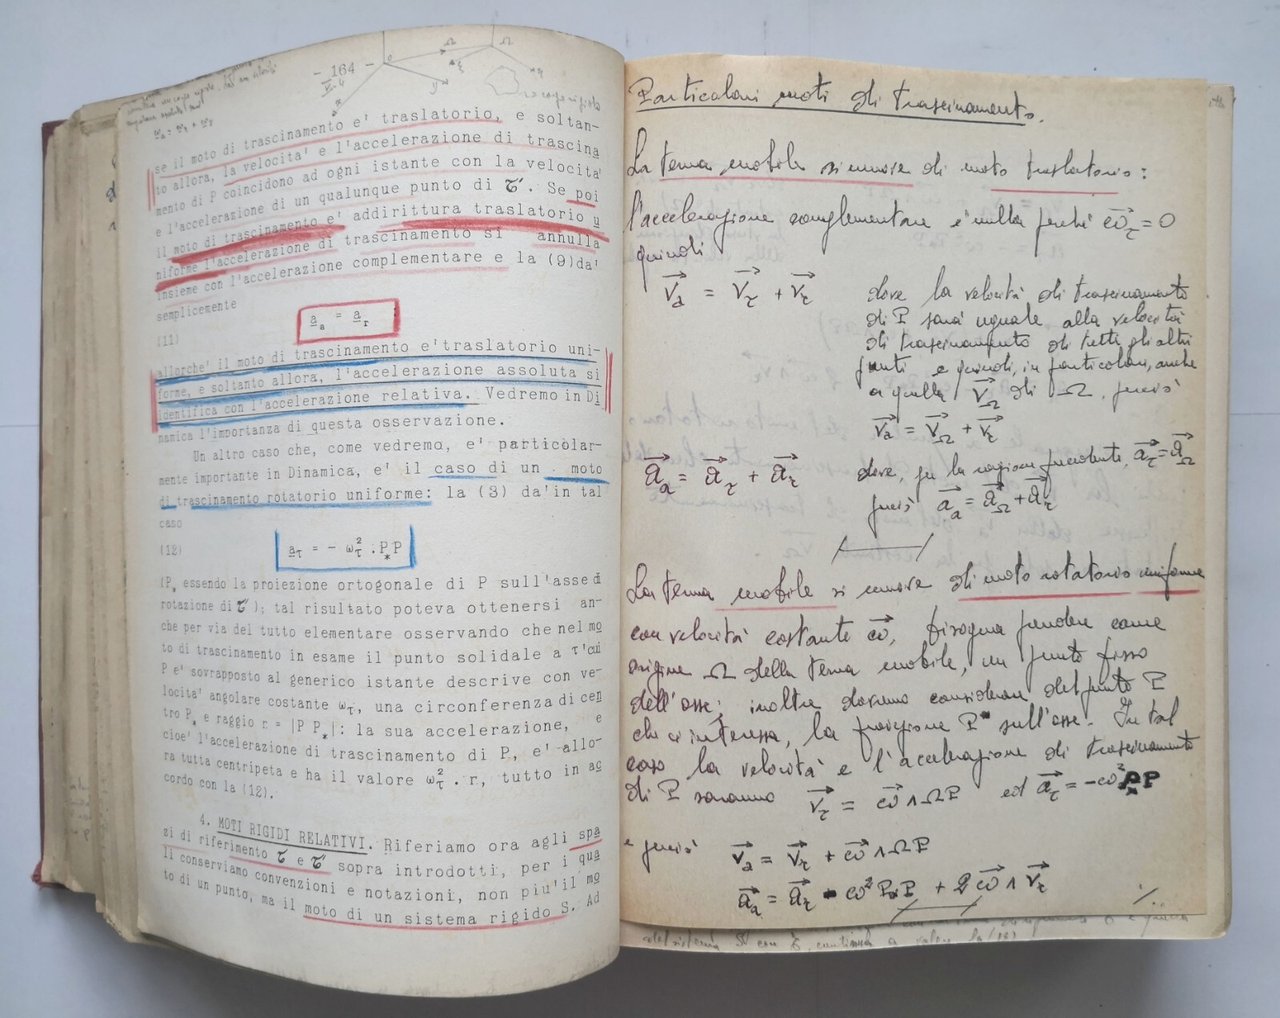 - 164 -
se il moto di trascinamento e' traslatorio, e soltan-
to allora, la velocita' e l'accelerazione di trascina
mento di P coincidono ad ogni istante con la velocita'
e l'accelerazione di un qualunque punto di τ'. Se poi
il moto di trascinamento e' addirittura traslatorio u
niforme l'accelerazione di trascinamento si annulla
insieme con l'accelerazione complementare e la (9)da'
semplicemente
(11) a_a = a_r ;
allorche' il moto di trascinamento e'traslatorio uni-
forme, e soltanto allora, l'accelerazione assoluta si
identifica con l'accelerazione relativa. Vedremo in Di
namica l'importanza di questa osservazione.
Un altro caso che, come vedremo, e' particolar-
mente importante in Dinamica, e' il caso di un moto
di trascinamento rotatorio uniforme: la (3) da'in tal
caso
(12) a_τ = - ω_τ^2 .P_*P
(P_* essendo la proiezione ortogonale di P sull'asse di
rotazione di τ'); tal risultato poteva ottenersi an-
che per via del tutto elementare osservando che nel mo
to di trascinamento in esame il punto solidale a τ'cui
P e' sovrapposto al generico istante descrive con ve-
locita' angolare costante ω_τ, una circonferenza di cen
tro P_* e raggio r = |P P_*|: la sua accelerazione, e
cioe' l'accelerazione di trascinamento di P, e' allo-
ra tutta centripeta e ha il valore ω_τ^2 . r, tutto in ac
cordo con la (12).
4. MOTI RIGIDI RELATIVI. Riferiamo ora agli spa
zi di riferimento τ e τ' sopra introdotti, per i qua
li conserviamo convenzioni e notazioni, non piu'il mo
to di un punto, ma il moto di un sistema rigido S. Ad
Particolari moti di trascinamento.
La terna mobile si muove di moto traslatorio:
l'accelerazione complementare è nulla perché ω⃗_τ = 0
quindi
v⃗_a = v⃗_τ + v⃗_r
dove la velocità di trascinamento
di P sarà uguale alla velocità
di trascinamento di tutti gli altri
punti e quindi, in particolare, anche
a quella v⃗_Ω di Ω, perciò
v⃗_a = v⃗_Ω + v⃗_r
a⃗_a = a⃗_τ + a⃗_r
dove, per la ragione precedente, a⃗_τ = a⃗_Ω
perciò a⃗_a = a⃗_Ω + a⃗_r
La terna mobile si muove di moto rotatorio uniforme
con velocità costante ω⃗, bisogna prendere come
origine Ω della terna mobile, un punto fisso
dell'asse; inoltre dovremo considerare del punto P
che ci interessa, la proiezione P* sull'asse. In tal
caso la velocità e l'accelerazione di trascinamento
di P saranno v⃗_τ = ω⃗ ∧ ΩP ed a⃗_τ = -ω²P_*P
e perciò v⃗_a = v⃗_r + ω⃗ ∧ ΩP
a⃗_a = a⃗_r - ω² P_*P + 2 ω⃗ ∧ v⃗_r